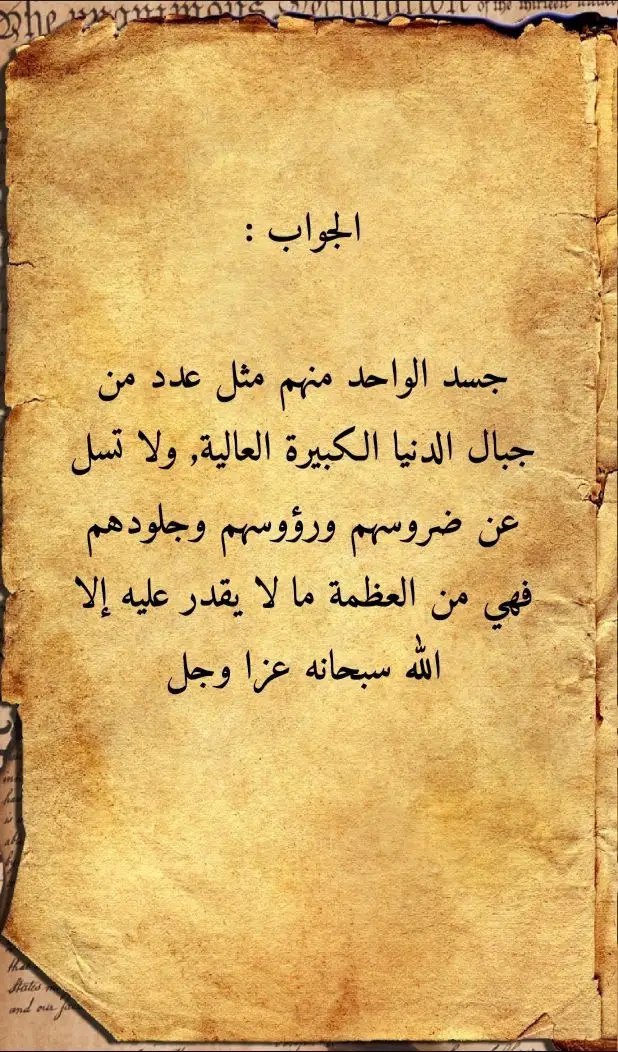 The unanimous Declaration of the thirteen united
الجواب :
جسد الواحد منهم مثل عدد من
جبال الدنيا الكبيرة العالية, ولا تسل
عن ضروسهم ورؤوسهم وجلودهم
فهي من العظمة ما لا يقدر عليه إلا
الله سبحانه عزا وجل
States
and our